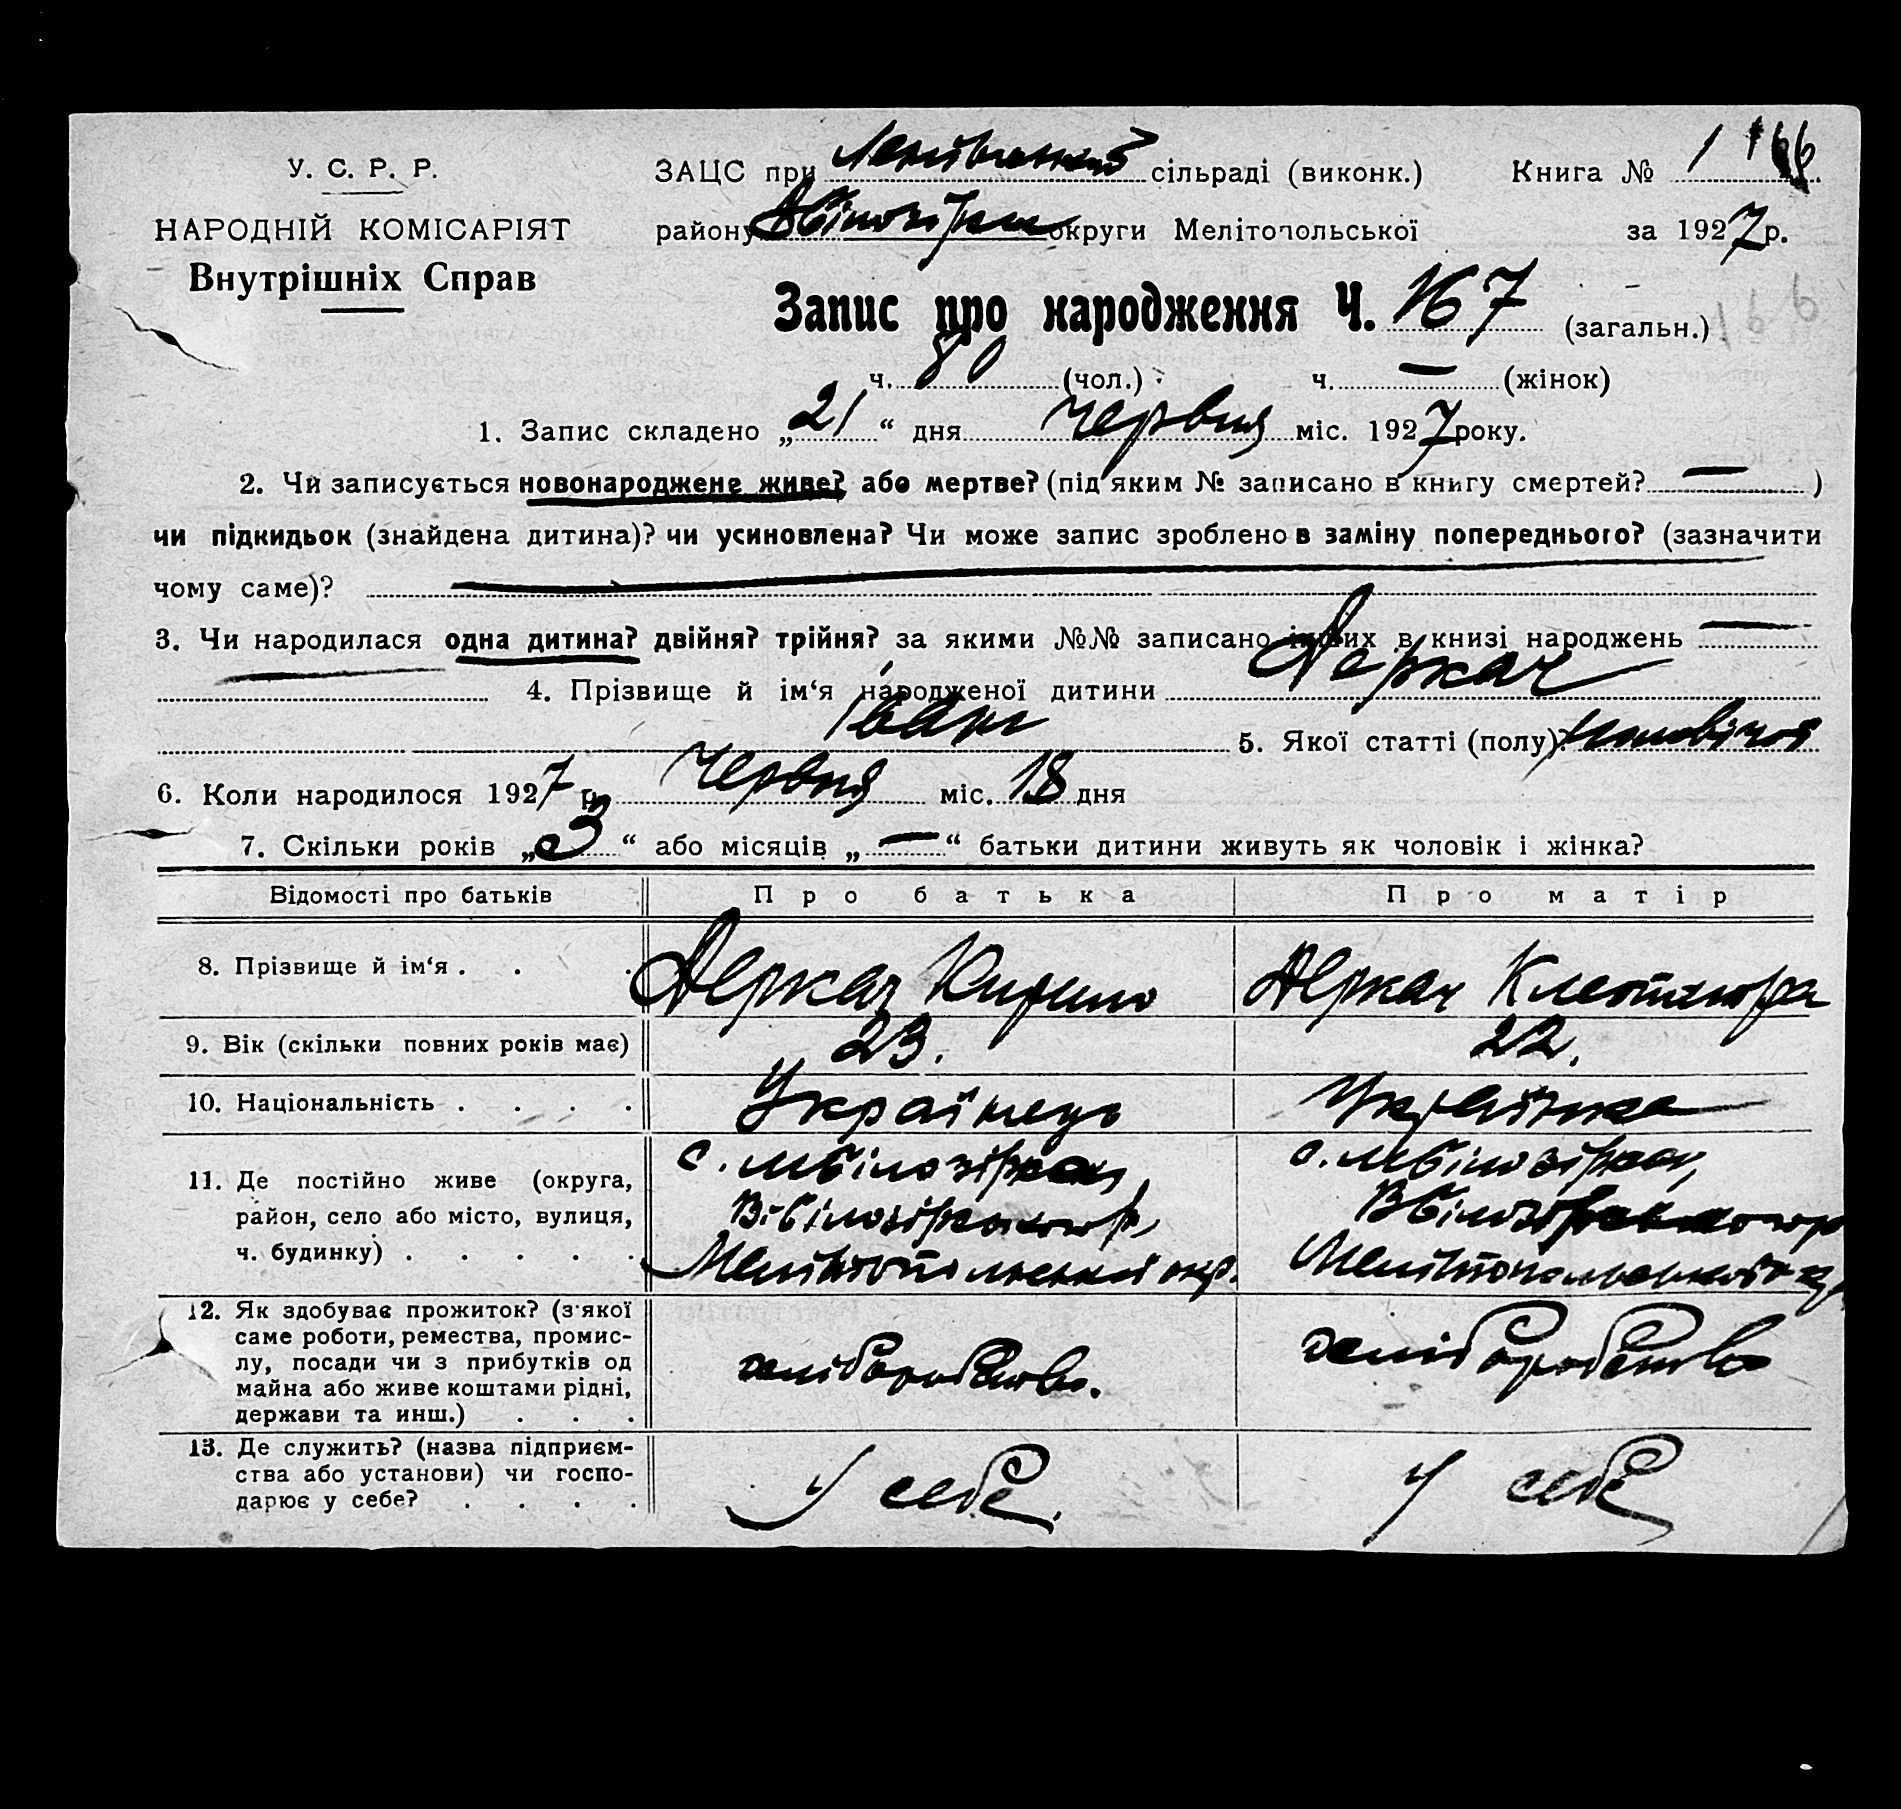 У. С. Р. Р.
НАРОДНІЙ КОМІСАРІЯТ
Внутрішніх Справ
ЗАЦС при сільраді (виконк.) Книга № 1
району округи Мелітопольської за 1927 р.
Запис про народження Ч. 167 (загальн.)
166
ч. 80 (чол.) ч. — (жінок)
1. Запис складено „21“ дня червня міс. 1927 року.
2. Чи записується новонароджене живе? або мертве? (під яким № записано в книгу смертей? — )
чи підкидьок (знайдена дитина)? чи усиновлена? Чи може запис зроблено в заміну попереднього? (зазначити
чому саме)? —
3. Чи народилася одна дитина? двійня? трійня? за якими №№ записано інших в книзі народжень —
— 4. Прізвище й ім‘я народженої дитини Деркач
Іван 5. Якої статті (полу)? чоловічої
6. Коли народилося 1927 р. червня міс. 18 дня
7. Скільки років „3“ або місяців „—“ батьки дитини живуть як чоловік і жінка?
Відомості про батьків Про батька Про матір
8. Прізвище й ім‘я . . . Деркач Кирило Деркач
9. Вік (скільки повних років має) 23. 22.
10. Національність . . . . Українець Українка
11. Де постійно живе (округа,
район, село або місто, вулиця,
ч. будинку) . . . . .
с.
Мелітопольської окр.
с.
Мелітопольської
12. Як здобуває прожиток? (з‘якої
саме роботи, ремества, промис-
лу, посади чи з прибутків од
майна або живе коштами рідні,
держави та инш.) . . .
хліборобство.
хліборобство
13. Де служить? (назва підприєм-
ства або установи) чи госпо-
дарює у себе? . . . .
У себе.
У себе